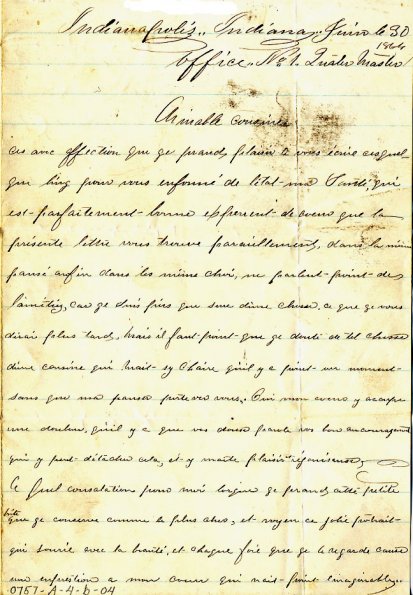 Indianapolis, Indiana, Juin le 30
1864
Office, No 1. Quater Master
Aimable cousine
ces avec affection que ge prand plaisir a vous ecrire cesquel
que ling pour vous enformé de letat ma Santé, qui
est parfaitement bonne esperent de coeur que la
presente lettre vous trouve paraillement, dans la même
pansé enfin dans les mème choi, ne parlent point de
lamitier, car ge suis fiers que sure dune chosse, ce que ge vous
dirai plus tard, mais il faut point que ge doute de tel chosse
dune cousine qui mait sy chaire quil y a point un moment
sans que ma pansee porte vers vous. Oui mon coeur y
une douleur, quil y a que vos douse parole vos bon encouragement
qui y peut détacher cela, et y maite plaisir rejouisence,
Ce quel consolation pour moi lorsque ge prand cette petite
boite
que ge conserve comme la plus cher, et voyer ce jolie portrait
qui sourie avec la beauté, et chaque foie que ge le regarde cause
une a mon coeur qui nait point
0757-A-4-6-04